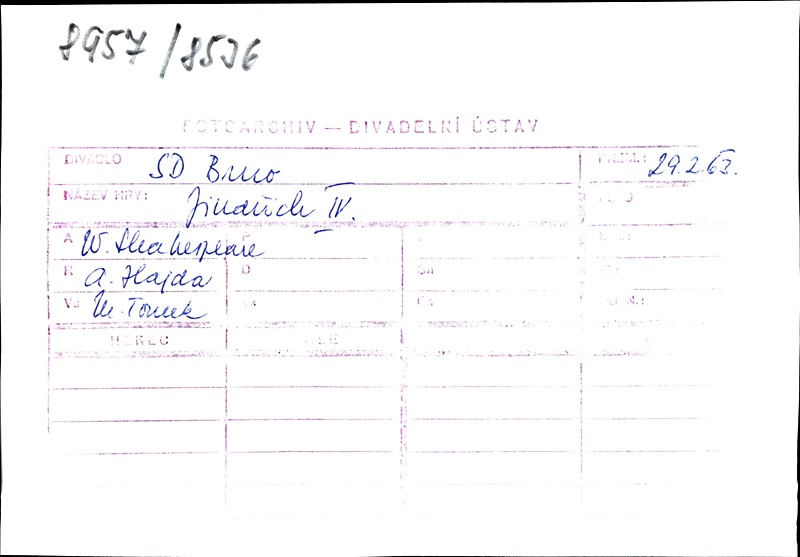 8957/8536
FOTOARCHIV — DIVADELNÍ ÚSTAV
DIVADLO SD Brno PREM.: 29.2.63.
NÁZEV HRY: Jindřich IV.
A W. Shakespeare
R A. Hajda D
M. Tomek
HEREC